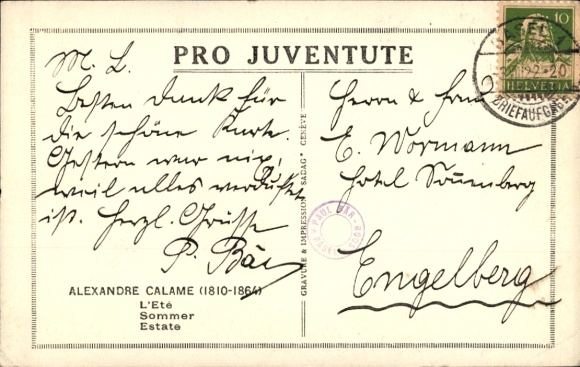 PRO JUVENTUTE
M. L.
Besten Dank für
die schöne Karte.
Gestern war nix,
weil alles verduftet
ist. Herzl. Grüsse
P. Bär
ALEXANDRE CALAME (1810-1864)
L'Eté
Sommer
Estate
GRAVURE & IMPRESSION "SADAG" GENÈVE
Herrn & Frau
E. Wormann
Hotel Sonnenberg
Engelberg
10
HELVETIA
BRIEFAUFGABE
PAUL BÄR
BASEL